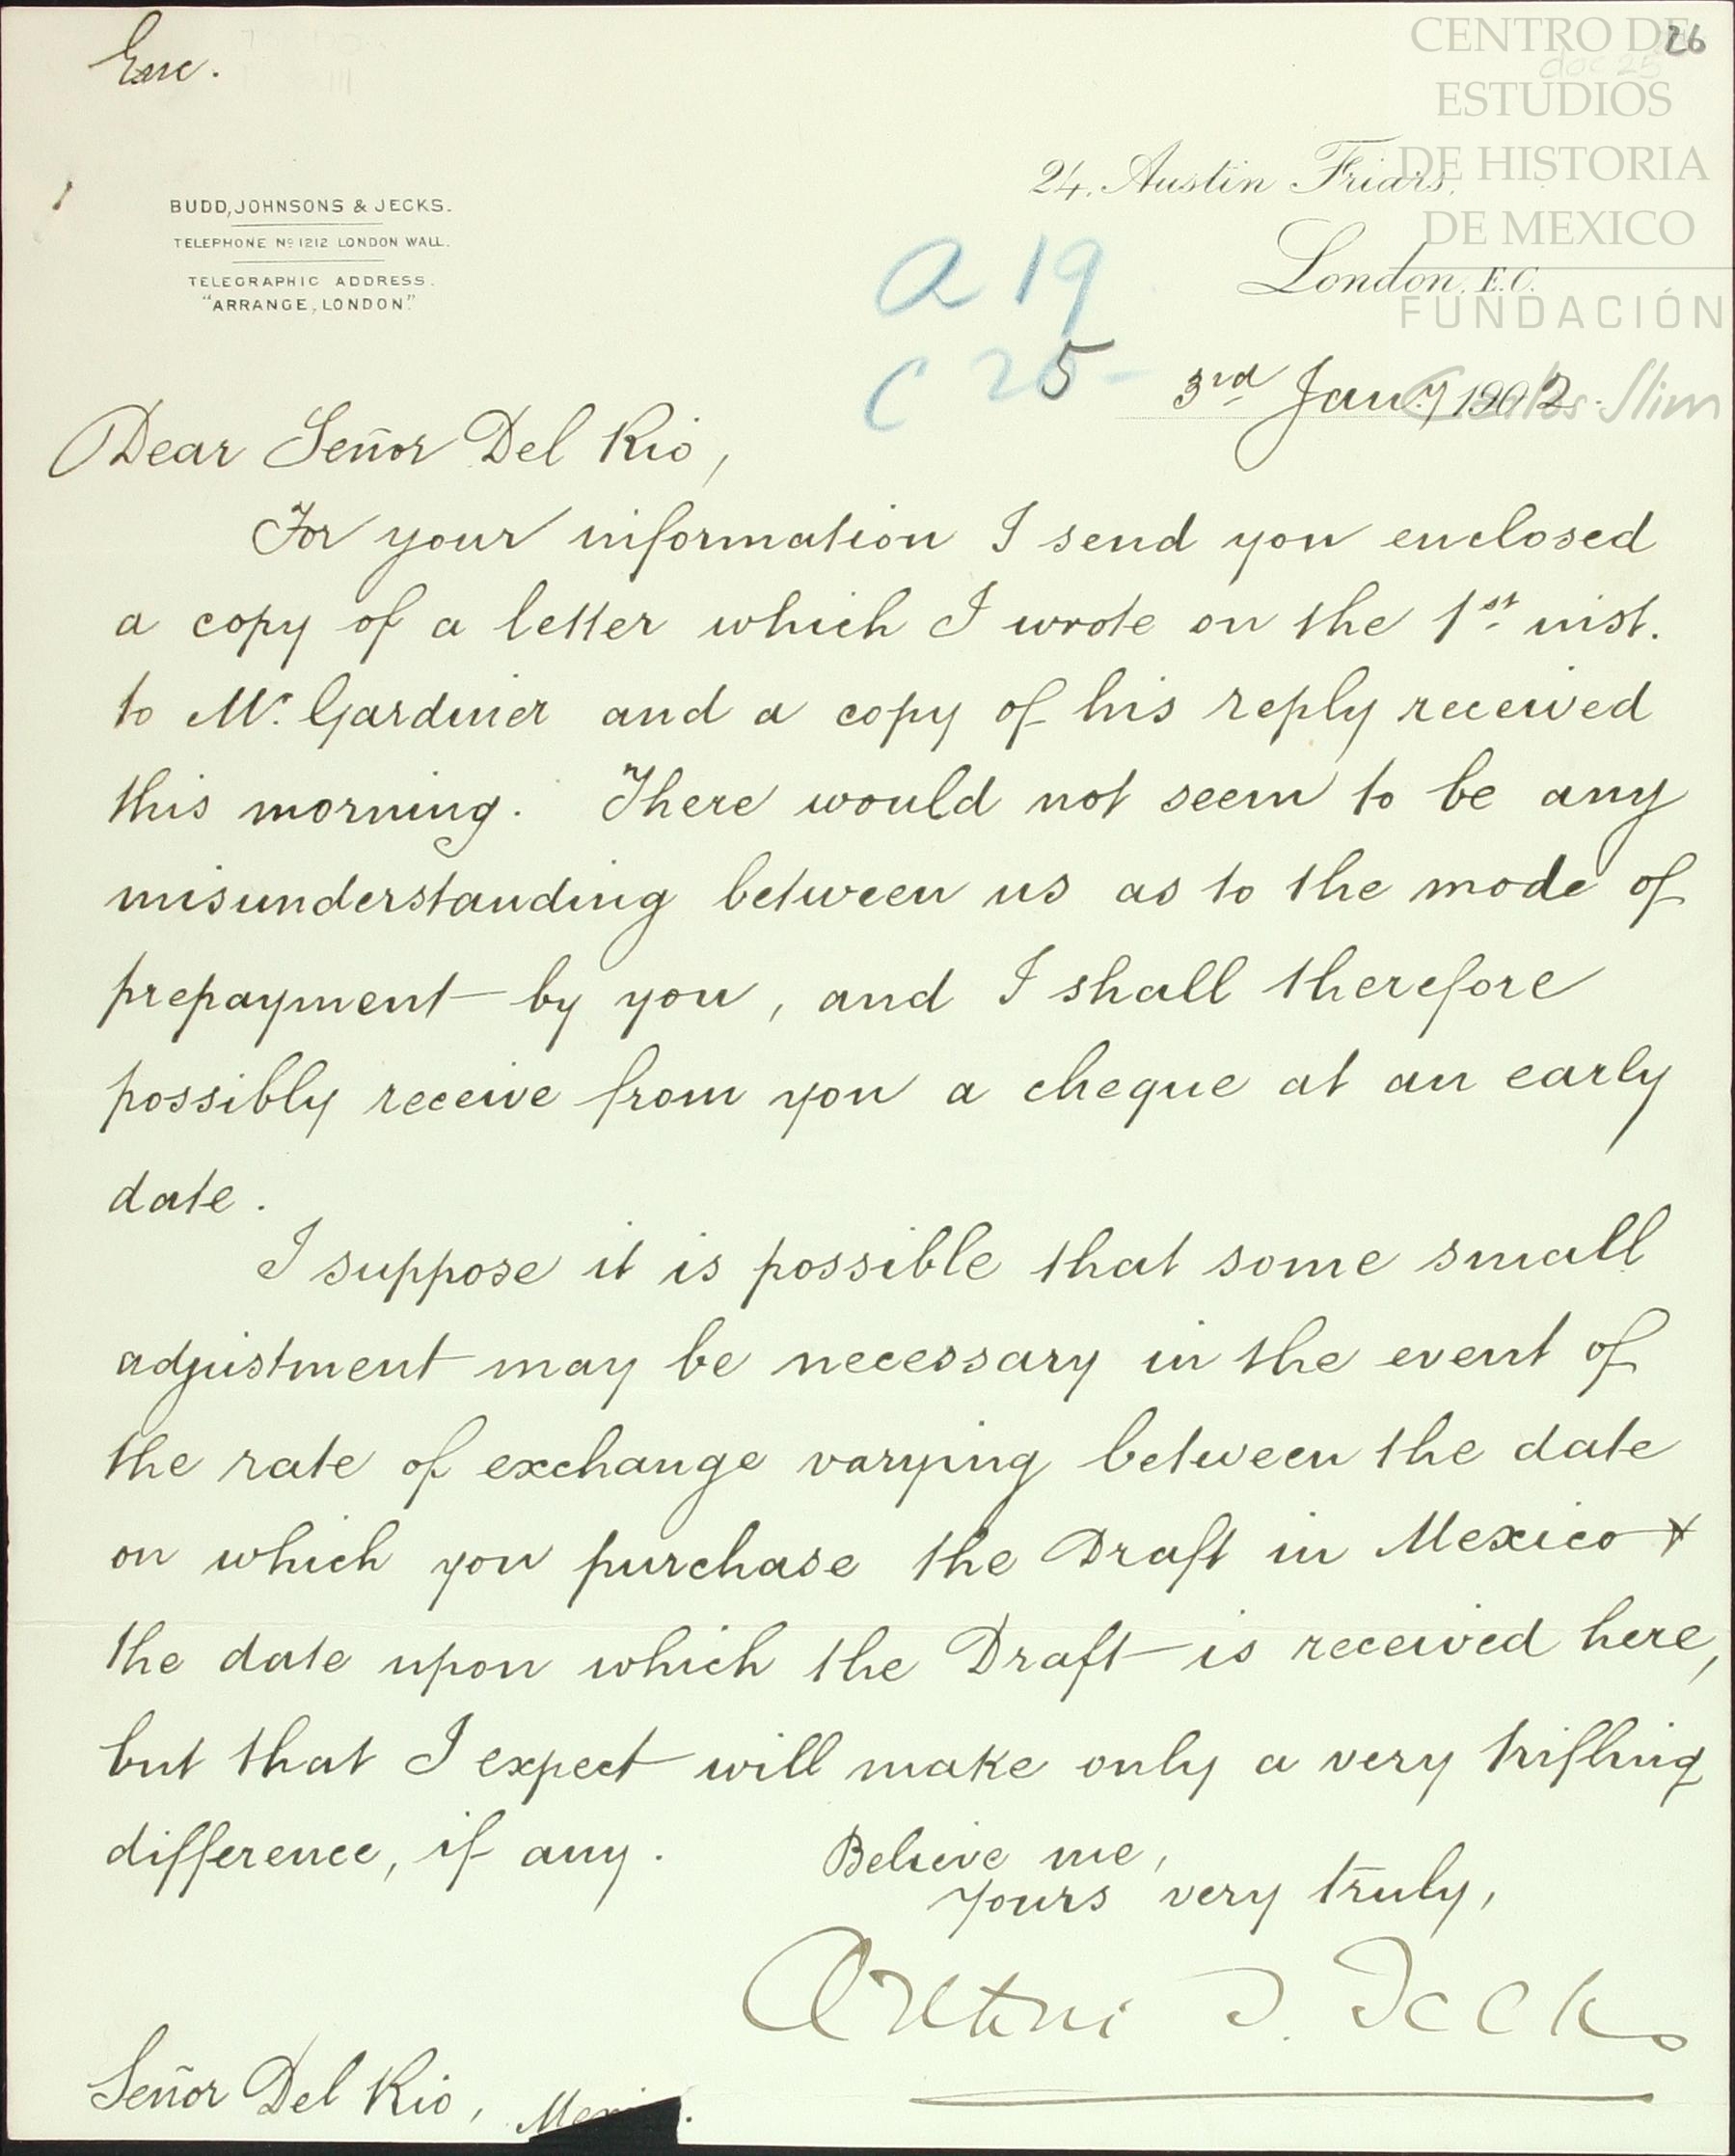 Enc.
26
doc 25
CENTRO DE
ESTUDIOS
DE HISTORIA
DE MEXICO
FUNDACIÓN
Carlos Slim
BUDD, JOHNSONS & JECKS.
TELEPHONE Nº 1212 LONDON WALL.
TELEGRAPHIC ADDRESS.
"ARRANGE, LONDON".
24, Austin Friars,
London, E.C.
A 19
C 25
3rd Jany 1902.
Dear Señor Del Rio,
For your information I send you enclosed
a copy of a letter which I wrote on the 1st inst.
to Mr. Gardiner and a copy of his reply received
this morning. There would not seem to be any
misunderstanding between us as to the mode of
prepayment by you, and I shall therefore
possibly receive from you a cheque at an early
date.
I suppose it is possible that some small
adjustment may be necessary in the event of
the rate of exchange varying between the date
on which you purchase the Draft in Mexico &
the date upon which the Draft is received here,
but that I expect will make only a very trifling
difference, if any.
Believe me,
Yours very truly,
Jecks
Señor Del Rio,